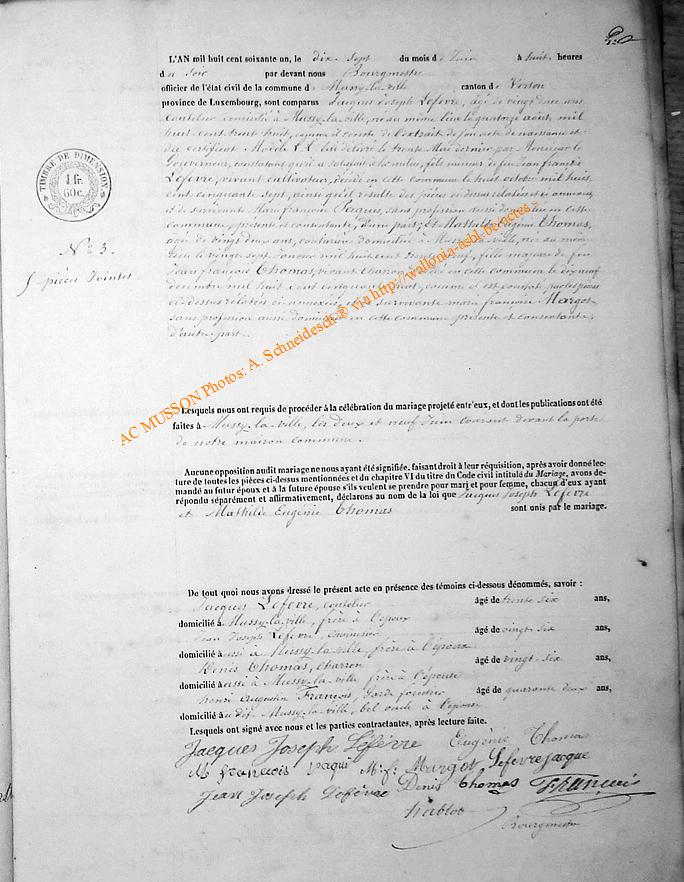 L'AN mil huit cent soixante un, le dix-sept du mois de Juin à huit heures
du soir par devant nous Bourgmestre
officier de l'état civil de la commune de Mussy-la-ville canton de Virton
province de Luxembourg, sont comparus Jacques Joseph Lefevre, âgé de vingt deux ans
coutelier domicilié à Mussy-la-ville, né au même lieu le quatorze août, mil
huit cent trente huit, comme il conste de l'extrait de son acte de naissance et
du certificat Modèle LL lui délivré le trente Mai dernier par Monsieur le
Gouverneur, constatant qu'il a satisfait à la milice, fils mineur de feu Jean françois
Lefevre, vivant cultivateur, décédé en cette commune le huit octobre mil huit
cent cinquante sept, ainsi qu'il résulte des pièces ci-dessus relatées et ci annexées,
et de survivante Marie françoise Paquis, sans profession aussi domiciliée en cette
commune, présente et consentante, d'une part; et Mathilde Eugénie Thomas,
agée de vingt deux ans, couturière domiciliée à Mussy-la-ville, née au même
lieu le vingt sept Janvier mil huit cent neuf, fille majeure de feu
Jean françois Thomas, vivant Charron, décédé en cette commune le dix neuf
décembre mil huit cent cinquante comme il est constaté par les pièces
ci-dessus relatées et annexées, et de survivante marie françoise Margot
sans profession aussi domiciliée en cette commune présente et consentante,
d'autre part.
TIMBRE DE DIMENSION
1 fr.
60 c.
N° 3.
5 pièces Jointes.
Lesquels nous ont requis de procéder à la célébration du mariage projeté entr'eux, et dont les publications ont été
faites à Mussy-la-ville, les deux et neuf Juin courant devant la porte
de notre maison commune.
Aucune opposition audit mariage ne nous ayant été signifiée, faisant droit à leur réquisition, après avoir donné lec-
ture de toutes les pièces ci-dessus mentionnées et du chapitre VI du titre du Code civil intitulé du Mariage, avons de-
mandé au futur époux et à la future épouse s'ils veulent se prendre pour mari et pour femme, chacun d'eux ayant
répondu séparément et affirmativement, déclarons au nom de la loi que Jacques Joseph Lefevre
et Mathilde Eugénie Thomas sont unis par le mariage.
De tout quoi nous avons dressé le présent acte en présence des témoins ci-dessous dénommés, savoir :
Jacques Lefevre, coutelier âgé de trente six ans,
domicilié à Mussy-la-ville, frère à l'époux
Jean Joseph Lefevre, âgé de vingt six ans,
domicilié aussi à Mussy-la-ville, frère à l'époux
Denis Thomas, charron âgé de vingt six ans,
domicilié aussi à Mussy-la-ville frère à l'épouse
henri Augustin François, Garde forestier âgé de quarante deux ans,
domicilié au dit Mussy-la-ville, bel oncle à l'épouse
Lesquels ont signé avec nous et les parties contractantes, après lecture faite.
Jacques Joseph Lefèvre Eugénie Thomas
M françois paqui M. f. Margot Lefevre jacque
Jean Joseph Lefèvre Denis thomas François
Bourgmestre
AC MUSSON Photos: A. Schneidesch ® via http://wallonia-asbl-be/actes-